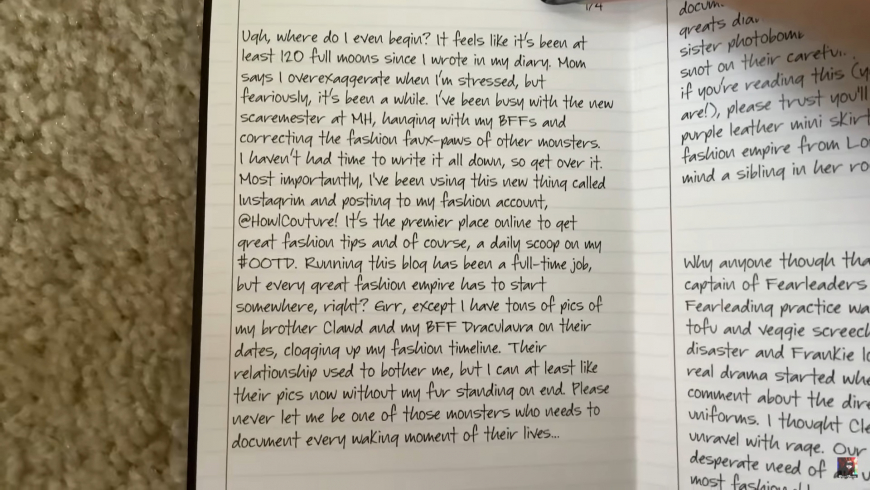 1/4
Ugh, where do I even begin? It feels like it's been at
least 120 full moons since I wrote in my diary. Mom
says I overexaggerate when I'm stressed, but
feariously, it's been a while. I've been busy with the new
scaremester at MH, hanging with my BFFs and
correcting the fashion faux-paws of other monsters.
I haven't had time to write it all down, so get over it.
Most importantly, I've been using this new thing called
Instagrim and posting to my fashion account,
@HowlCouture! It's the premier place online to get
great fashion tips and of course, a daily scoop on my
#OOTD. Running this blog has been a full-time job,
but every great fashion empire has to start
somewhere, right? Grr, except I have tons of pics of
my brother Clawd and my BFF Draculaura on their
dates, clogging up my fashion timeline. Their
relationship used to bother me, but I can at least like
their pics now without my fur standing on end. Please
never let me be one of those monsters who needs to
document every waking moment of their lives...
docum
greats dia
sister photobomb
snot on their
if you're reading this (y
are!), please trust you'll
purple leather mini skirt
fashion empire from Lo
mind a sibling in her ro
Why anyone though tha
captain of Fearleaders
Fearleading practice wa
tofu and veggie screech
disaster and Frankie lo
real drama started whe
comment about the dire
uniforms. I thought Cle
unravel with rage. Our
desperate need of
most fashion